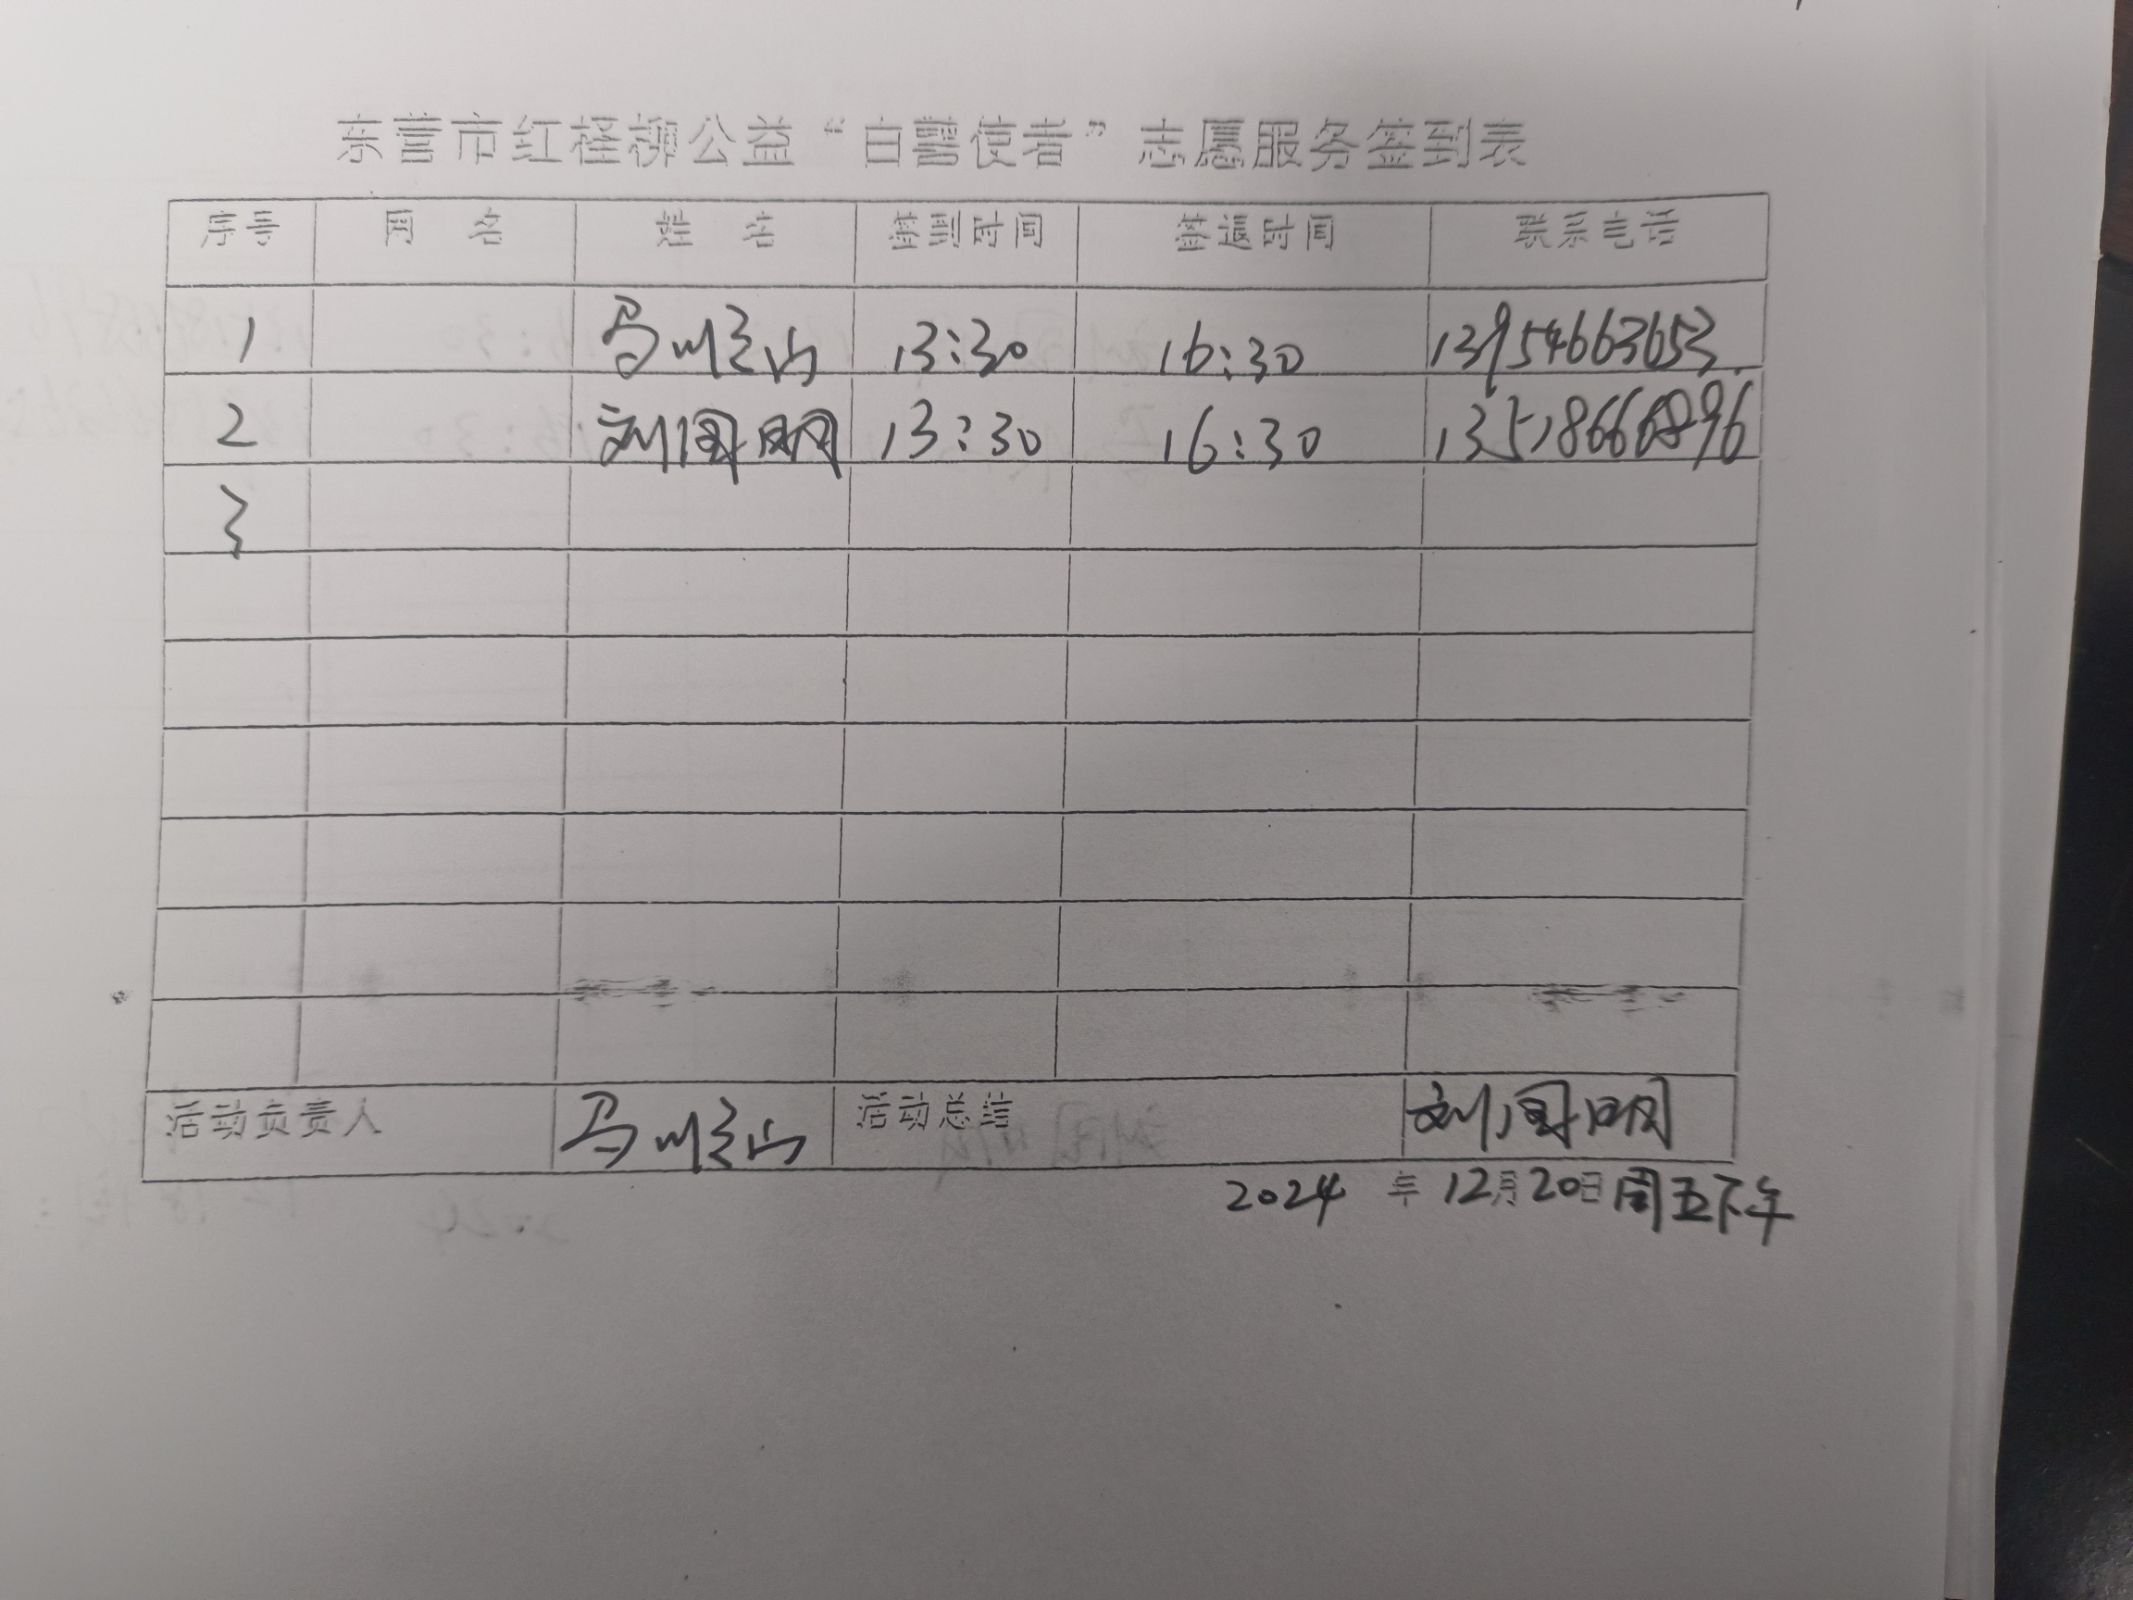 东营市红柽柳公益“白鹭使者”志愿服务签到表
序号 网 名 姓 名 签到时间 签退时间 联系电话
1 马川 山 13:30 16:30 13954663653
2 刘国明 13:30 16:30
3
活动负责人 马川 山 活动总结 刘国明
2024 年 12月20日周五下午